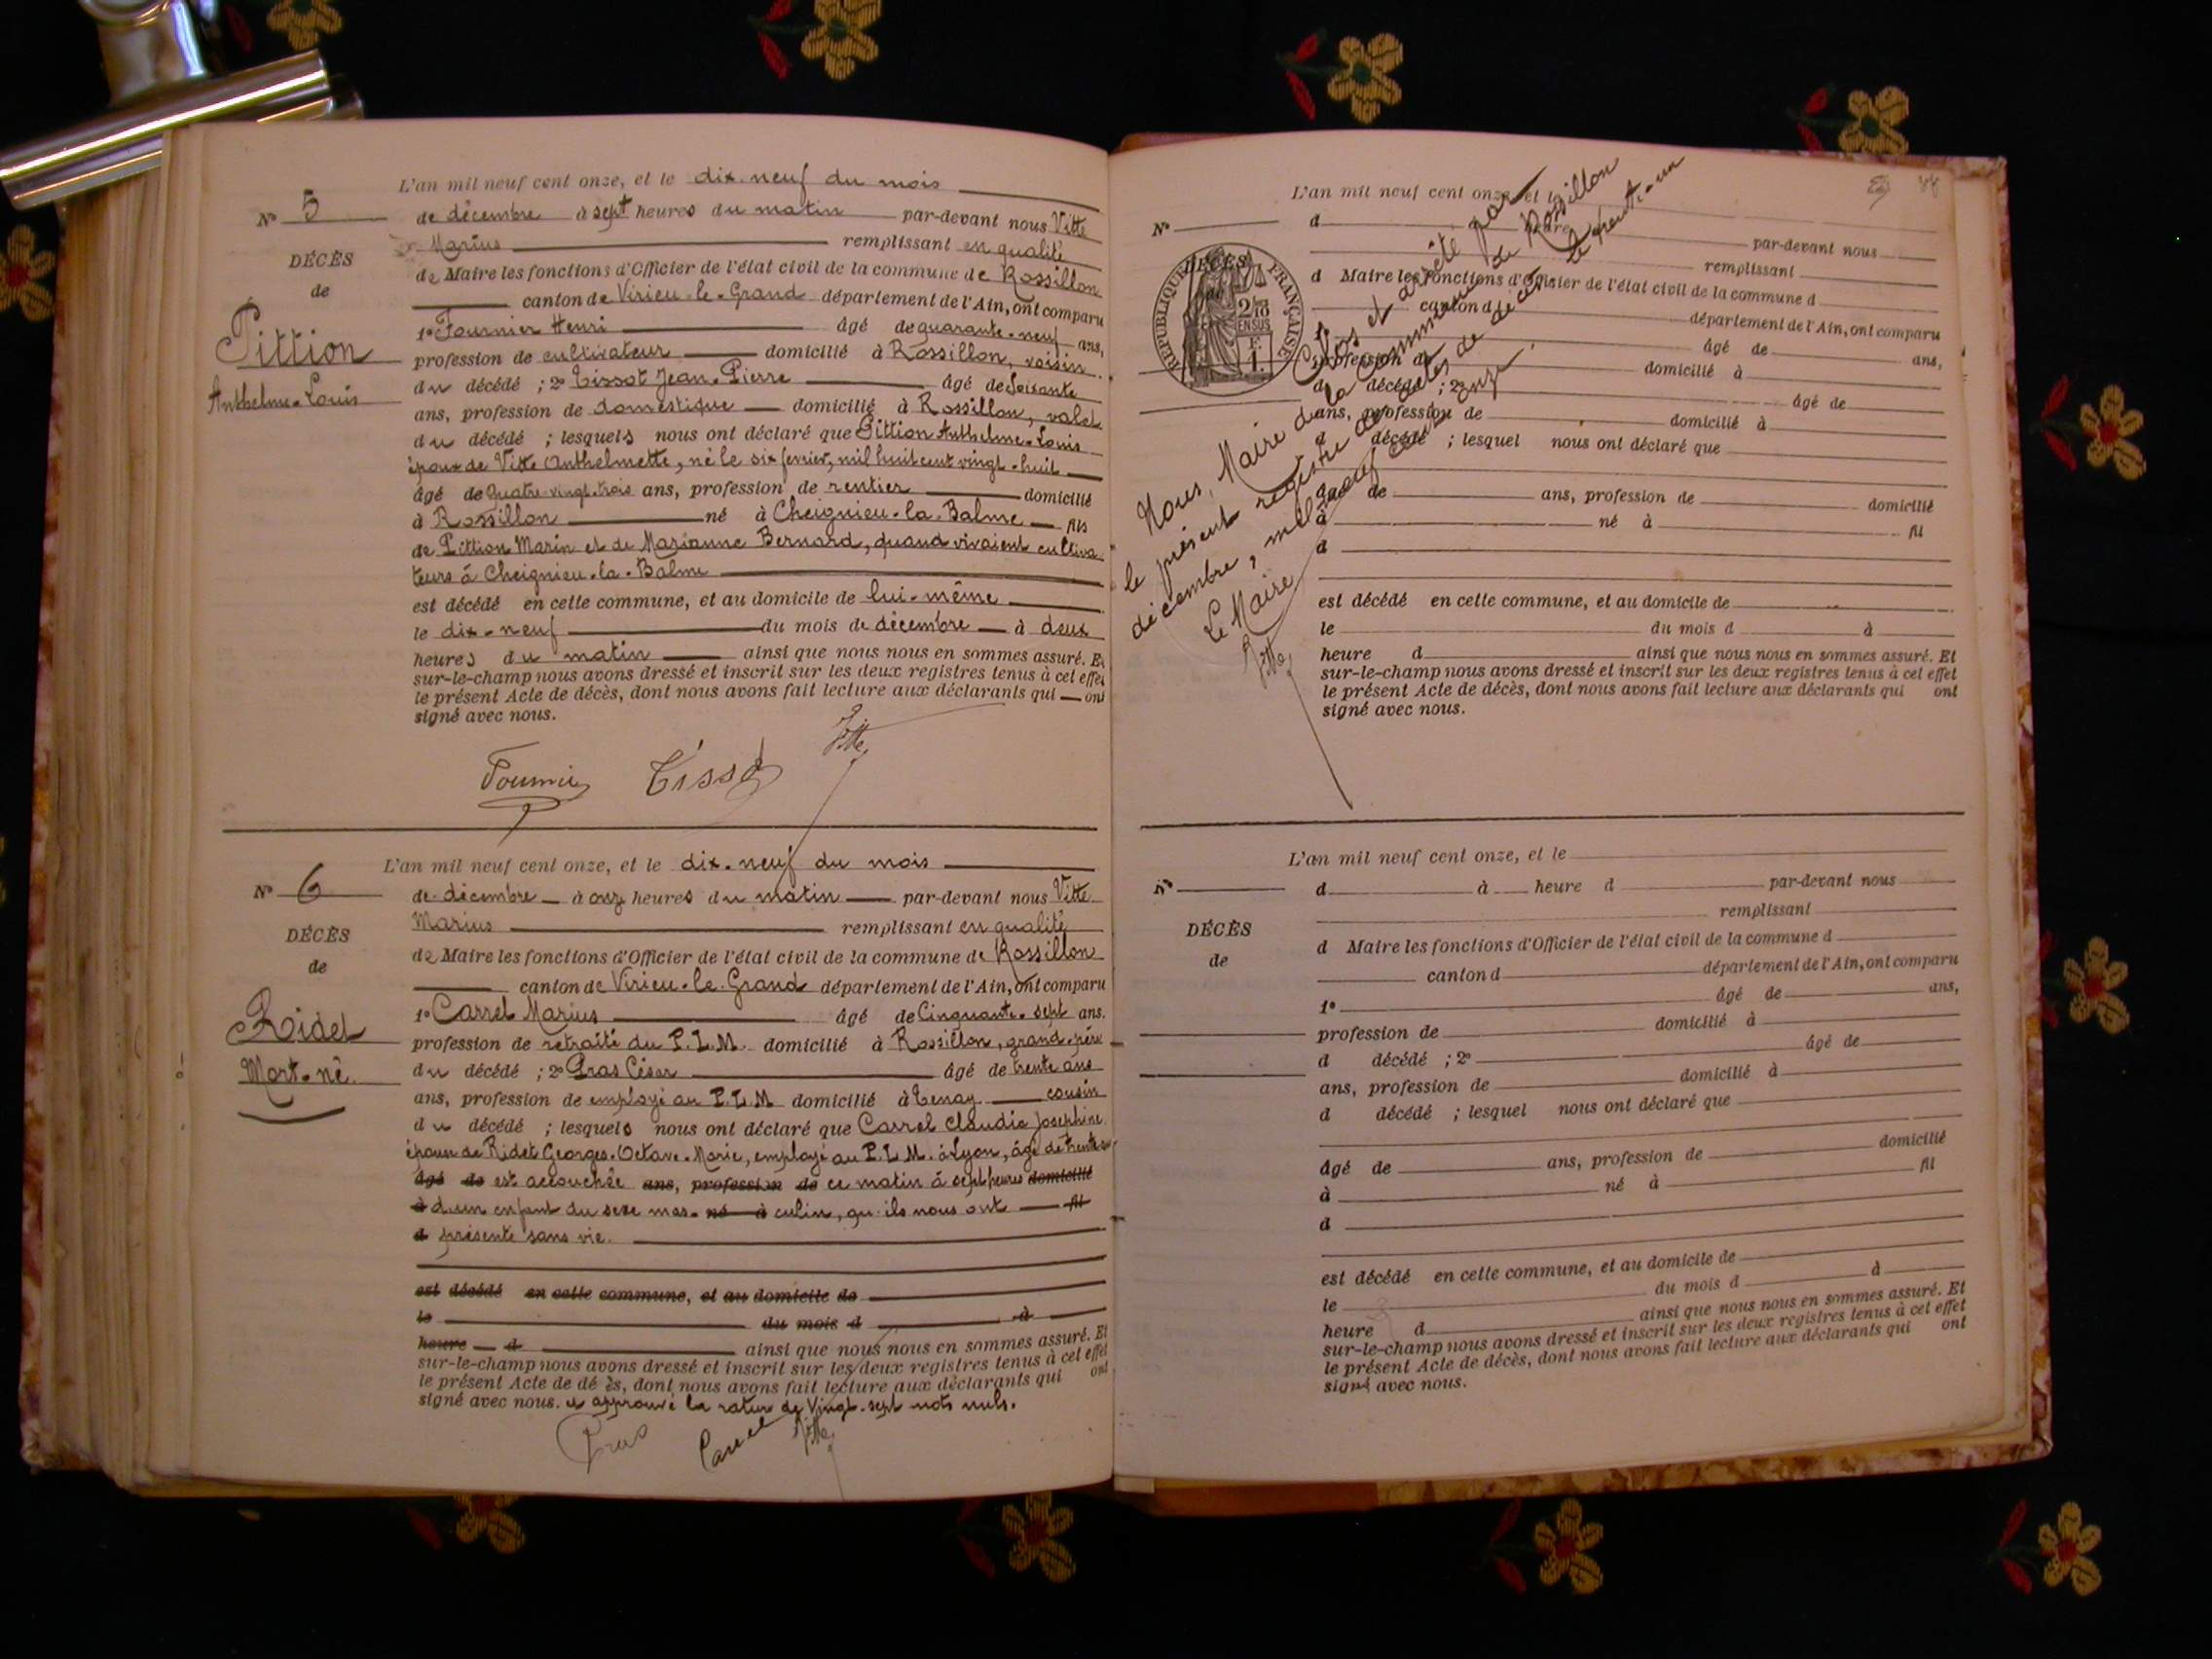 L'an mil neuf cent onze, et le dix-neuf du mois
N° 5
de décembre à sept heures du matin par-devant nous Vitte
Marius remplissant en qualité
DÉCÈS
de Maire les fonctions d'Officier de l'état civil de la commune de Rossillon
de
canton de Virieu-le-Grand département de l'Ain, ont comparu
Pittion
1° Fournier Henri âgé de quarante-neuf ans,
profession de cultivateur domicilié à Rossillon, voisin
Anthelme-Louis
du décédé ; 2° Tissot Jean-Pierre âgé de soisante
ans, profession de domestique domicilié à Rossillon, valet
du décédé ; lesquels nous ont déclaré que Pittion Anthelme-Louis
époux de Vitte Anthelmette, né le six fevrier, mil huit cent vingt-huit
âgé de quatre-vingt-trois ans, profession de rentier domicilié
à Rossillon né à Cheignieu-la-Balme fils
de Pittion Marin et de Marianne Bernard, quand vivaient cultiva-
teurs à Cheignieu-la-Balme
est décédé en cette commune, et au domicile de lui-même
le dix-neuf du mois de décembre à deux
heures du matin ainsi que nous nous en sommes assuré. Et
sur-le-champ nous avons dressé et inscrit sur les deux registres tenus à cet effet
le présent Acte de décès, dont nous avons fait lecture aux déclarants qui ont
signé avec nous.
Fournier Tissot Vitte
L'an mil neuf cent onze, et le dix-neuf du mois
N° 6
de décembre à onze heures du matin par-devant nous Vitte
Marius remplissant en qualité
DÉCÈS
de Maire les fonctions d'Officier de l'état civil de la commune de Rossillon
de
canton de Virieu-le-Grand département de l'Ain, ont comparu
Ridet
1° Carrel Marius âgé de Cinquante-sept ans.
profession de retraité du P.L.M. domicilié à Rossillon, grand-père
Mort-né.
du décédé ; 2° Gras César âgé de trente ans
ans, profession de employé au P.L.M domicilié à Tenay cousin
du décédé ; lesquels nous ont déclaré que Carrel Claudia Josephine
épouse de Ridet Georges-Octave-Marie, employé au P.L.M. à Lyon, âgé de trente
âgé de est accouchée ans, profession de ce matin à sept heures domicilié
à d'un enfant du sexe mas- né à culin, qu'ils nous ont fil
d présenté sans vie.
est décédé en cette commune, et au domicile de
le du mois d à
heure d ainsi que nous nous en sommes assuré. Et
sur-le-champ nous avons dressé et inscrit sur les deux registres tenus à cet effet
le présent Acte de dé ès, dont nous avons fait lecture aux déclarants qui ont
signé avec nous. et approuvé la rature de Vingt-sept mots nuls.
Gras Carrel Vitte
L'an mil neuf cent onze, et le
N°
d heure par-devant nous
remplissant
DÉCÈS
d Maire les fonctions d'Officier de l'état civil de la commune d
canton d département de l'Ain, ont comparu
RÉPUBLIQUE FRANÇAISE
2/10
EN SUS
1F.
1° âgé de ans,
profession de domicilié à
d décédé ; 2° âgé de
ans, profession de domicilié à
d décédé ; lesquel nous ont déclaré que
âgé de ans, profession de domicilié
à né à fil
d
est décédé en cette commune, et au domicile de
le du mois d à
heure d ainsi que nous nous en sommes assuré. Et
sur-le-champ nous avons dressé et inscrit sur les deux registres tenus à cet effet
le présent Acte de décès, dont nous avons fait lecture aux déclarants qui ont
signé avec nous.
Clos et arrêté par
Nous, Maire de la Commune de Rossillon
le présent registre des actes de décès le trente-un
décembre, mil neuf cent onze.
Le Maire
Vitte
L'an mil neuf cent onze, et le
N°
d à heure d par-devant nous
remplissant
DÉCÈS
d Maire les fonctions d'Officier de l'état civil de la commune d
de
canton d département de l'Ain, ont comparu
1° âgé de ans,
profession de domicilié à
d décédé ; 2° âgé de
ans, profession de domicilié à
d décédé ; lesquel nous ont déclaré que
âgé de ans, profession de domicilié
à né à fil
d
est décédé en cette commune, et au domicile de
le du mois d à
heure d ainsi que nous nous en sommes assuré. Et
sur-le-champ nous avons dressé et inscrit sur les deux registres tenus à cet effet
le présent Acte de décès, dont nous avons fait lecture aux déclarants qui ont
signé avec nous.